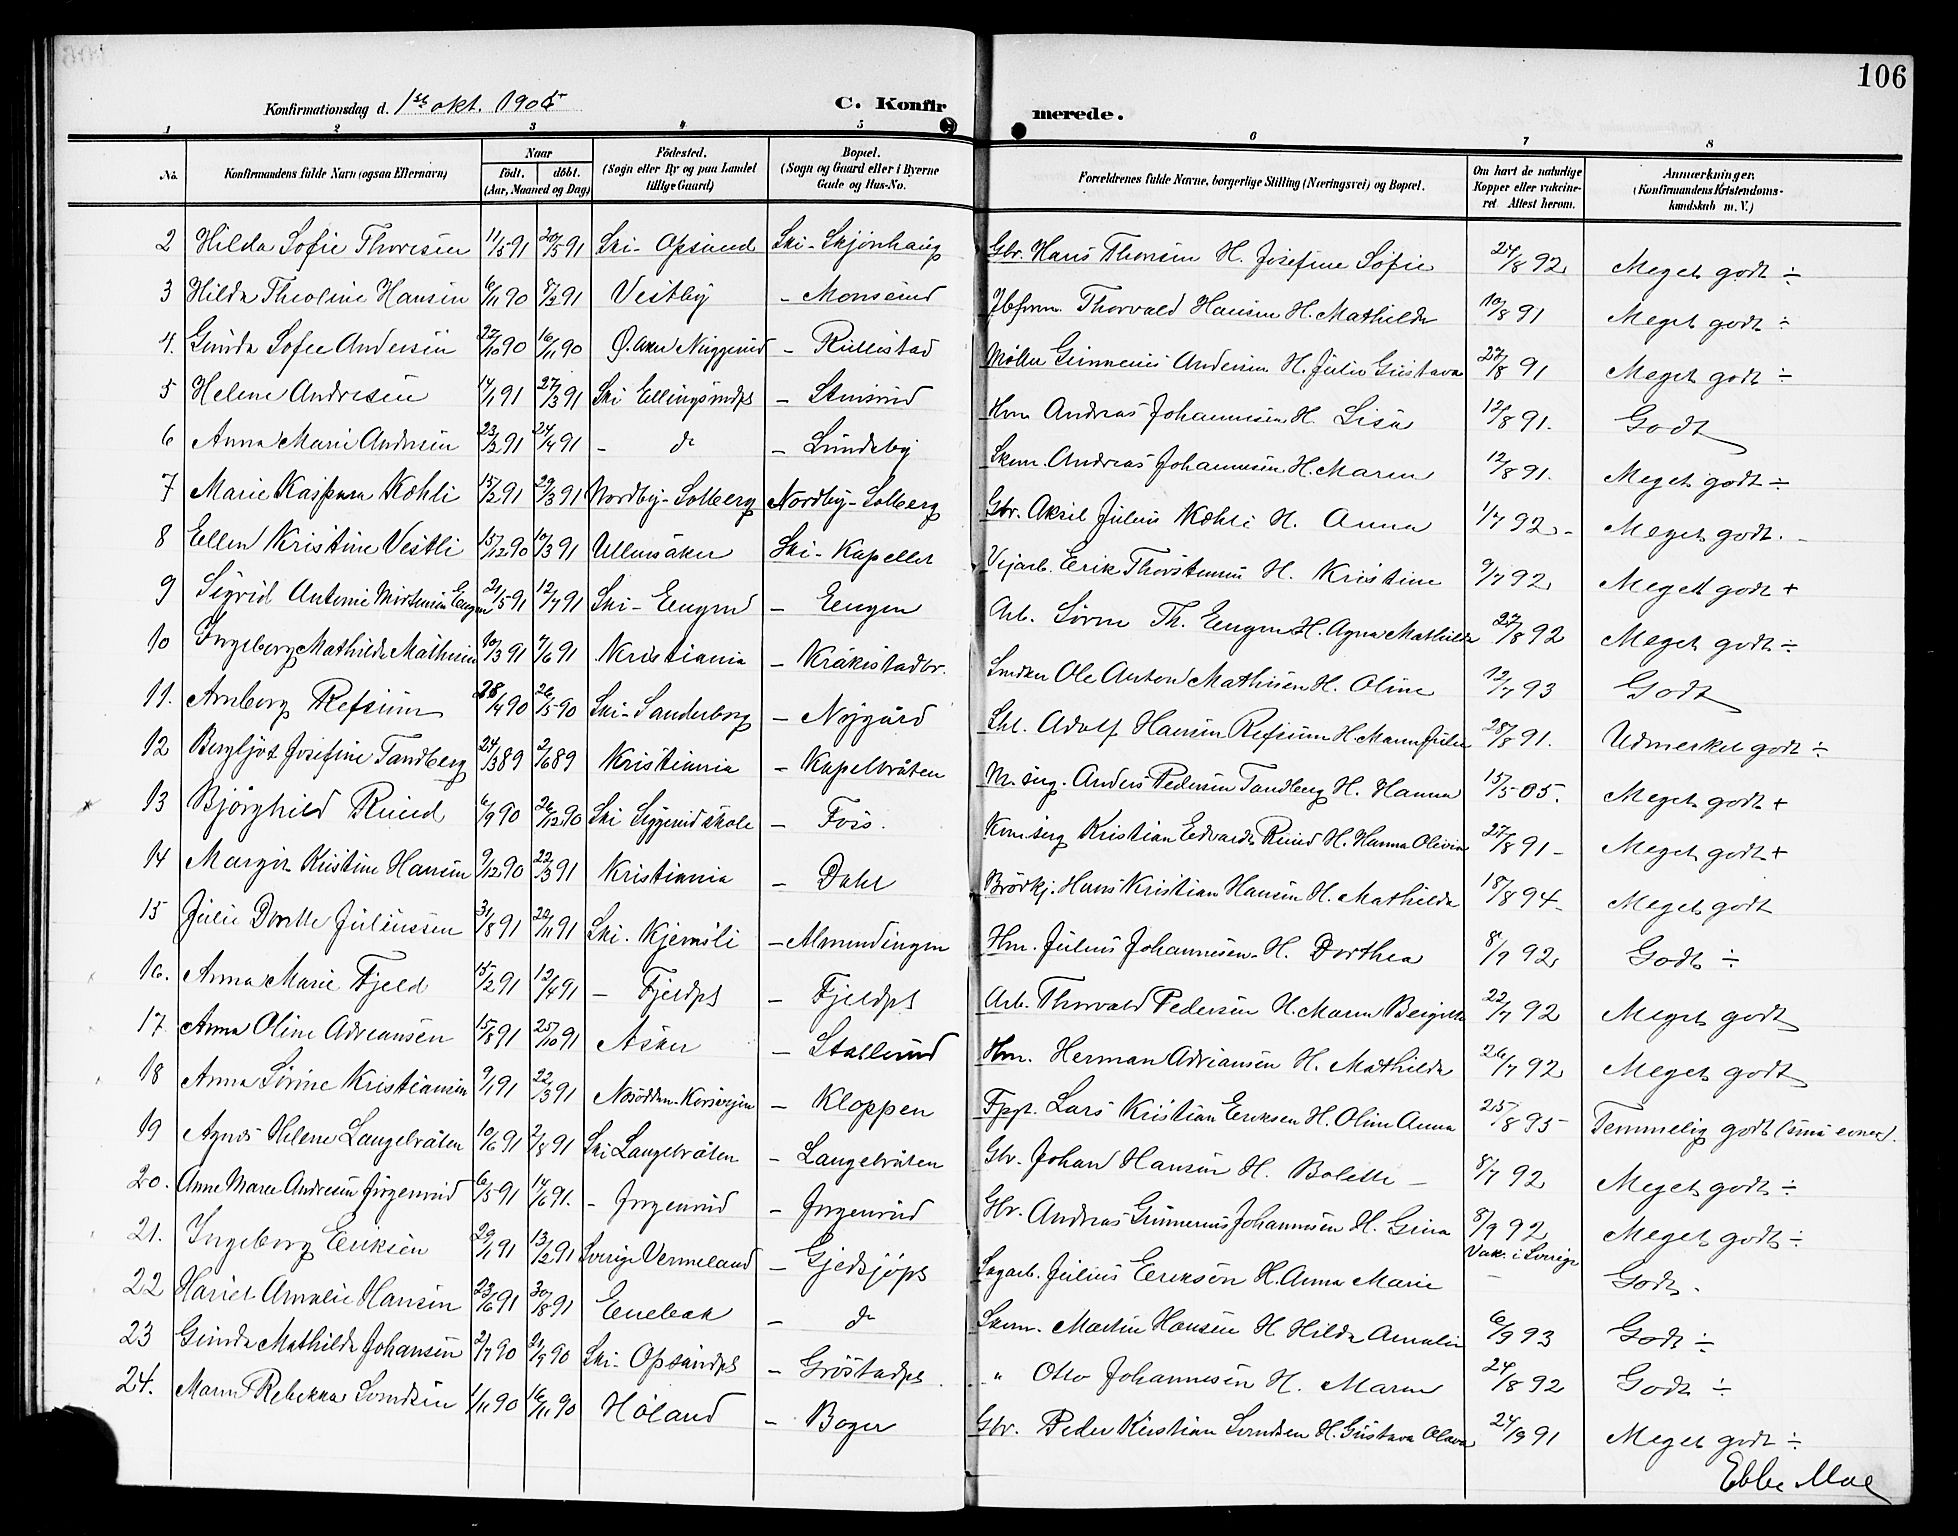 106
Konfirmationsdag d. 1ste okt. 1905
C. Konfirmerede.
1 2 3 4 5 6 7 8
No. Konfirmandens fulde Navn (ogsaa Efternavn) Naar født. døbt. (Aar, Maaned og Dag) Fødested. (Sogn eller By og paa Landet tillige Gaard) Bopæl. (Sogn og Gaard eller i Byerne Gade og Hus-No. Forældrenes fulde Navne, borgerlige Stilling (Næringsvei) og Bopæl. Om havt de naturlige Kopper eller vakcineret Attest herom. Anmærkninger. (Konfirmandens Kristendomskundskab m. V.)
2 Hilda Sofie Thoresen 11/5 91 20/5 91 Ski - Opsund Ski - Skjønhaug Gbr. Hans Thoresen H. Josefine Sofie 27/8 92 Meget godt ÷
3 Hilda Theoline Hansen 6/11 90 8/2 91 Vestby - Monsrud Jbform. Thorvald Hansen H. Mathilda 10/8 91 Meget godt ÷
4. Gunda Sofie Andersen 22/10 90 16/11 90 Ø. Aker Nuggerud - Rullestad Møller Gunnerius Andersen H. Julie Gustava 27/8 91 Meget godt ÷
5 Helene Andresen 14/1 91 27/3 91 Ski Ellingsrudpl - Stensrud Hm Andreas Johannesen H. Lisa 12/8 91. Godt
6 Anna Marie Andersen 23/2 91 24/4 91 - do - Lundeby Skom. Andreas Johannesen H. Maren 12/8 91. Meget godt ÷
7 Marie Kaspara Kæhli 15/2 91 29/3 91 Nordby - Solberg Nordby - Solberg Gbr. Aksel Julius Kæhli H. Anna 1/7 92 - Meget godt. -
8 Ellen Kristine Vestli 15/12 90 10/3 91 Ullensaker Ski - Kapellet Vejarb. Erik Thorstensen H. Kristine 9/7 92 Meget godt +
9 Sigrid Antonie Mortensen Eengen 21/5 91 12/7 91 Ski - Eengen - Eengen Arb. Sören Th. Eengen H. Agna Mathilda 27/8 92 Meget godt ÷
10 Ingeborg Mathilde Mathisen 10/3 91 7/6 91 Kristiania - Kråkstadbr. Snedker Ole Anton Mathisen H. Oline 12/7 93 Godt
11. Arnborg Refsum 28/4 90 26/5 90 Ski - Sanderborg - Nygård Skl. Adolf Hansen Refsum H. Maren Julie 28/8 91. Udmerket godt ÷
12 Bergljot Josefine Tandberg 24/3 89 2/6 89 Kristiania - Kapelbråten M. serg. Anders Pedersen Tandberg H. Hanna 15/5 05. Meget godt +
13 Bjørghild Ruud 6/9 90 26/12 90 Ski Siggerud skole - Foss. Kom. serg Kristian Edvards Ruud H. Hanna Olivia 27/8 91 - Meget godt +
14 Margit Kristine Hansen 9/12 90 22/3 91 Kristiania - Dahl Brödkj. Hans Kristian Hansen H. Mathilda 18/8 94 - Meget godt
15 Julie Dorthe Juliussen 31/8 91 22/11 91 Ski - Kjemsli - Almendingen Hm. Julius Johannesen H. Dorthea 8/9 92 Godt ÷
16. Anna Marie Fjeld 15/2 91 12/4 91 - Fjeldpl - Fjeldpl Arb. Thorvald Pedersen H. Maren Bergitte 22/7 92 Meget godt
17. Anna Oline Adreansen 15/8 91 25/10 91 Asker - Stallerud Hm. Herman Adriansen H. Mathilda 26/7 92 Meget godt
18 Anna Sörine Kristiansen 9/1 91 22/3 91 Nesodden - Korsvejen - Kloppen Fpgt. Lars Kristian Eeriksen H. Oline Anna 25/8 95 - Temmelig godt (små evner).
19 Agnes Helene Langebråten 10/6 91 2/8 91 Ski Langebråten - Langebråten Gbr. Johan Hansen H. Bolette - 8/7 92 Meget godt ÷
20. Anne Maree Andresen Jørgenrud 6/5 91 14/6 91. - Jørgenrud - Jørgenrud Gbr. Andreas Gunnerius Johannesen H. Gina 8/9 92 Meget godt ÷
21. Ingeborg Eeriksen 29/1 91 13/2 91 Sverige Vermeland - Gjedsjöpl Sagarb. Julius Eeriksen H. Anna Marie Vak. i Sverige - Godt.
22 Hariet Amalie Hansen 23/6 91 30/8 91 Enebak - do Skom. Martin Hansen H. Hilda Amalie 6/9 93 Godt ÷
23 Gunda Mathilda Johansen 2/7 90 21/9 90 Ski - Opsandpl - Gröstadpl. " Otto Johannesen H. Maren 24/8 92 Godt ÷
24. Maren Rebekka Svendsen 1/11 90 16/11 90 Høland - Boger Gbr. Peder Kristian Svendsen H. Gustava Olava 24/9 91 Meget godt ÷
Ebbe Moe